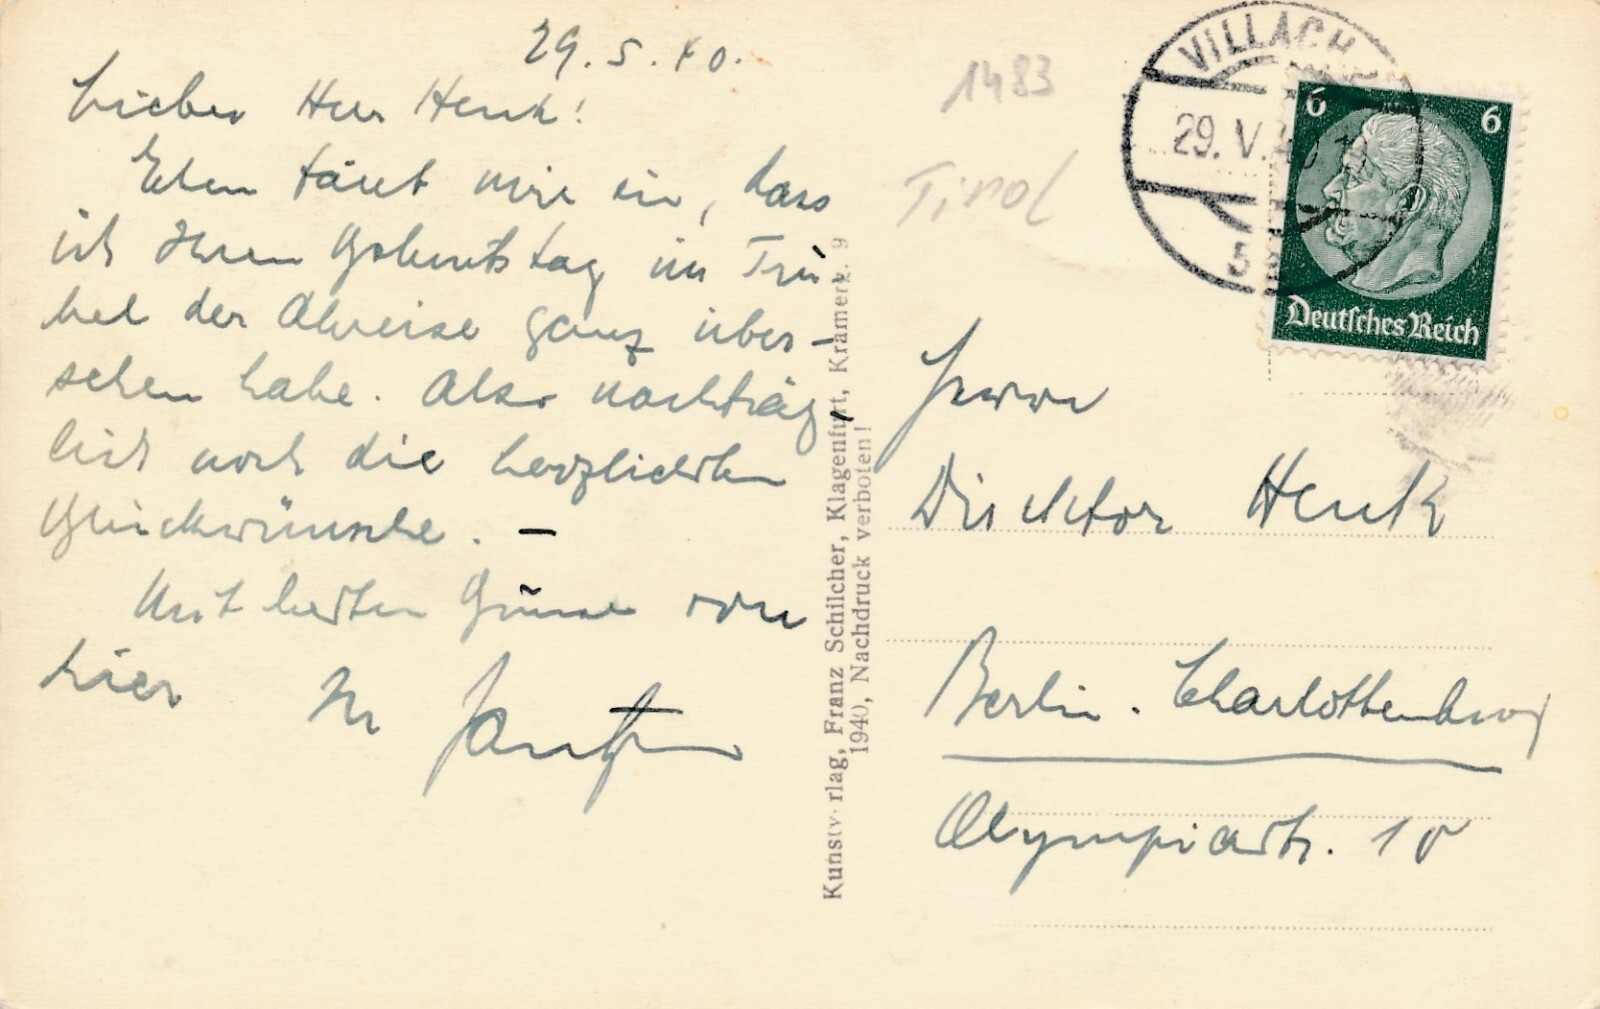 29.5.40.
Lieber Herr Henk!
Eben fällt mir ein, dass
ich Ihren Geburtstag im Tru-
bel der Abreise ganz über-
sehen habe. Also nachträg-
lich noch die herzlichsten
Glückwünsche. –
Mit besten Grüssen von
hier
Kunstv rlag, Franz Schilcher, Klagenfurt, Kramerg. 9
1940, Nachdruck verboten!
1483
Tirol
VILLACH
29. V. 40
5
6 6
Deutsches Reich
Herrn
Direktor Henk
Berlin. Charlottenburg
Olympiastr. 10